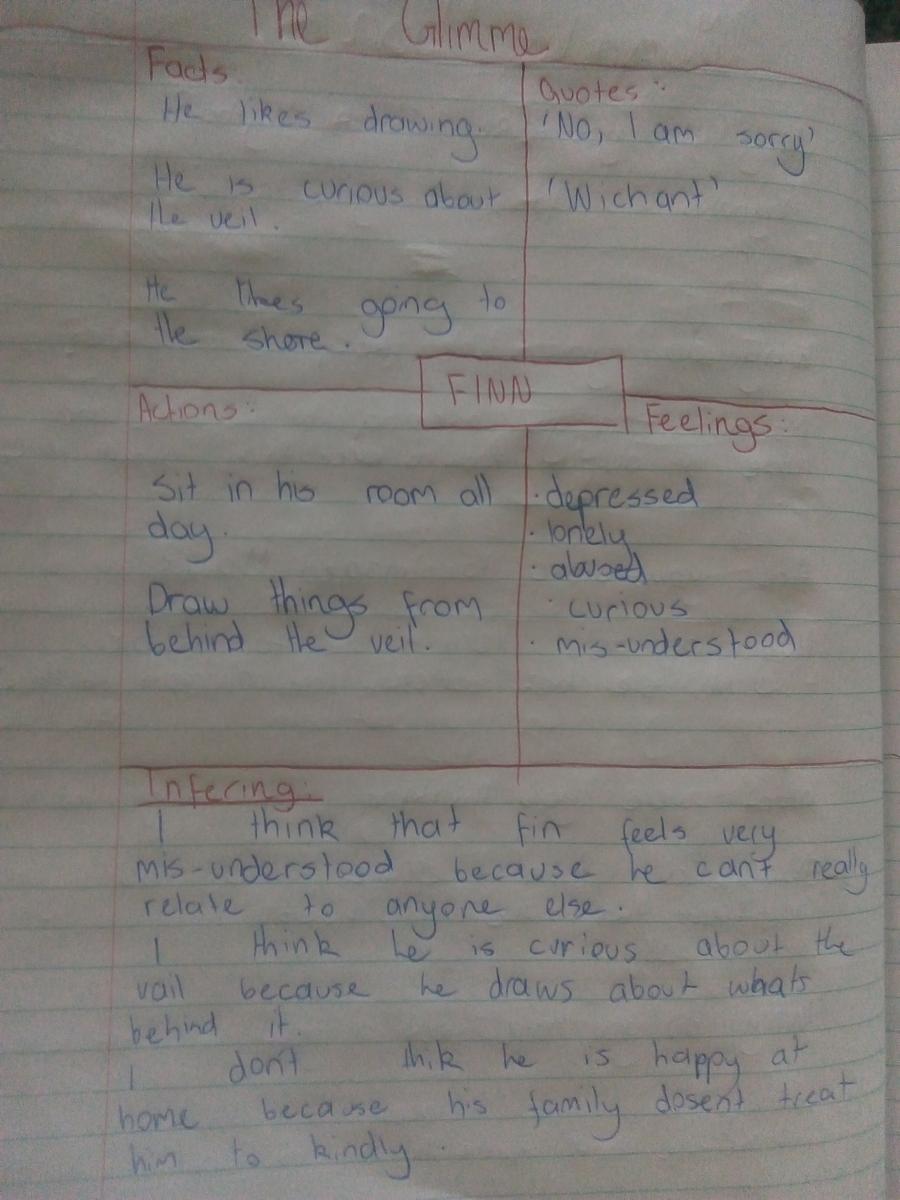 The Glimme
Facts
He likes drawing.
He is curious about
the veil.
He likes going to
the shore.
Quotes:
'No, I am sorry'
'Wichant'
FINN
Actions:
Sit in his room all
day.
Draw things from
behind the veil.
Feelings:
· depressed
· lonely
· abused
· curious
· mis-understood
Infering:
I think that fin feels very
mis-understood because he can't really
relate to anyone else.
I think he is curious about the
vail because he draws about whats
behind it.
I don't thik he is happy at
home because his family dosent treat
him to kindly.